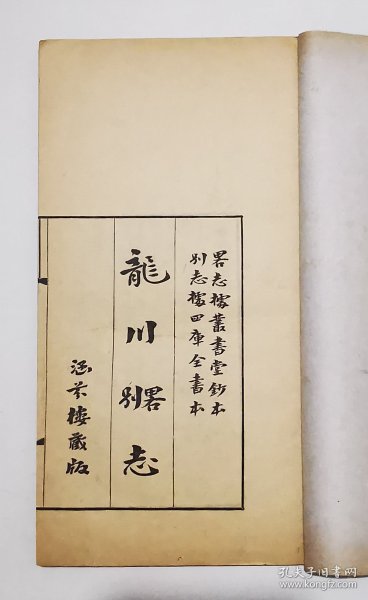 畧志據叢書堂鈔本
別志據四庫全書本
龍川畧別志
涵芬樓藏版
孔夫子旧书网
www.kongfz.com